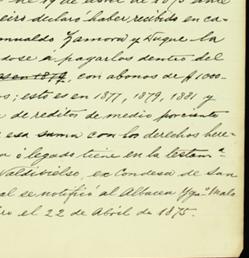 19 de abril de 1875 ante
declaro haber recibido en ca-
Zamora y Duque la
dose á pagarlos dentro del
con abonos de $1000
os; esto es en 1877, 1879, 1881 y
de reditos de medio por ciento
esa suma con los derechos here
ó legado tiene en la testam
Valdivielso, ex Condesa de San
al se notificó al Albacea Malo
ero el 22 de Abril de 1875.